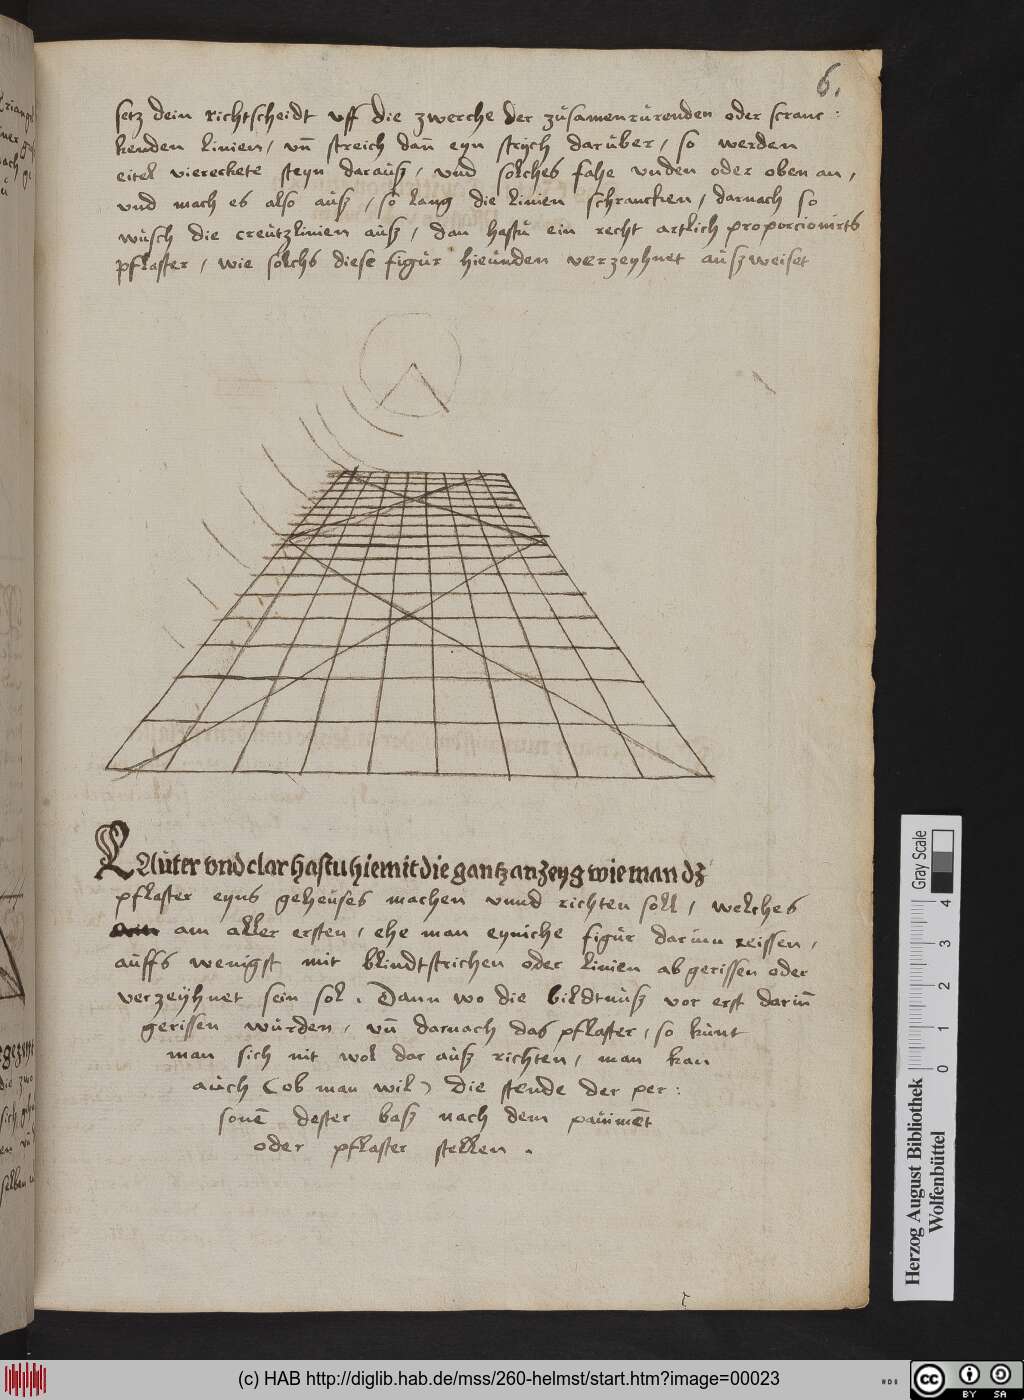 6.
setz dein richtscheidt vff die zwerche der züsamenrürenden oder scranc:
kenden linien, vn̄ streich dan̄ eyn strych darüber, so werden
eitel viereckete steyn darausz, vnd solches fahe vnden oder oben an,
vnd mach es also ausz, so lang die linien schrancken, darnach so
wüsch die creützlinien ausz, dan hastu ein recht artlich proporcionirts
pflaster, wie solchs diese figur hieunden verzeyhnet auszweiset
LAuter vnd clar hastu hiemit die gantz anzeyg wie man dz
pflaster eyns geheuses machen vnnd richten soll, welches
am aller ersten, ehe man eyniche figur darinn reissen,
auffs wenigst mit blindtstrichen oder linien abgerissen oder
verzeÿhnet sein sol. Dann wo die bildtnusz vor erst darin̄
gerissen würden, vn̄ darnach das pflaster, so künt
man sich nit wol dar ausz richten, man kan
auch (ob man wil) die stende der per:
sonē dester basz nach dem paüimēt
oder pflaster stellen.
Herzog August Bibliothek
Wolfenbüttel
Gray Scale
0 1 2 3 4
(c) HAB http://diglib.hab.de/mss/260-helmst/start.htm?image=00023
cc BY SA